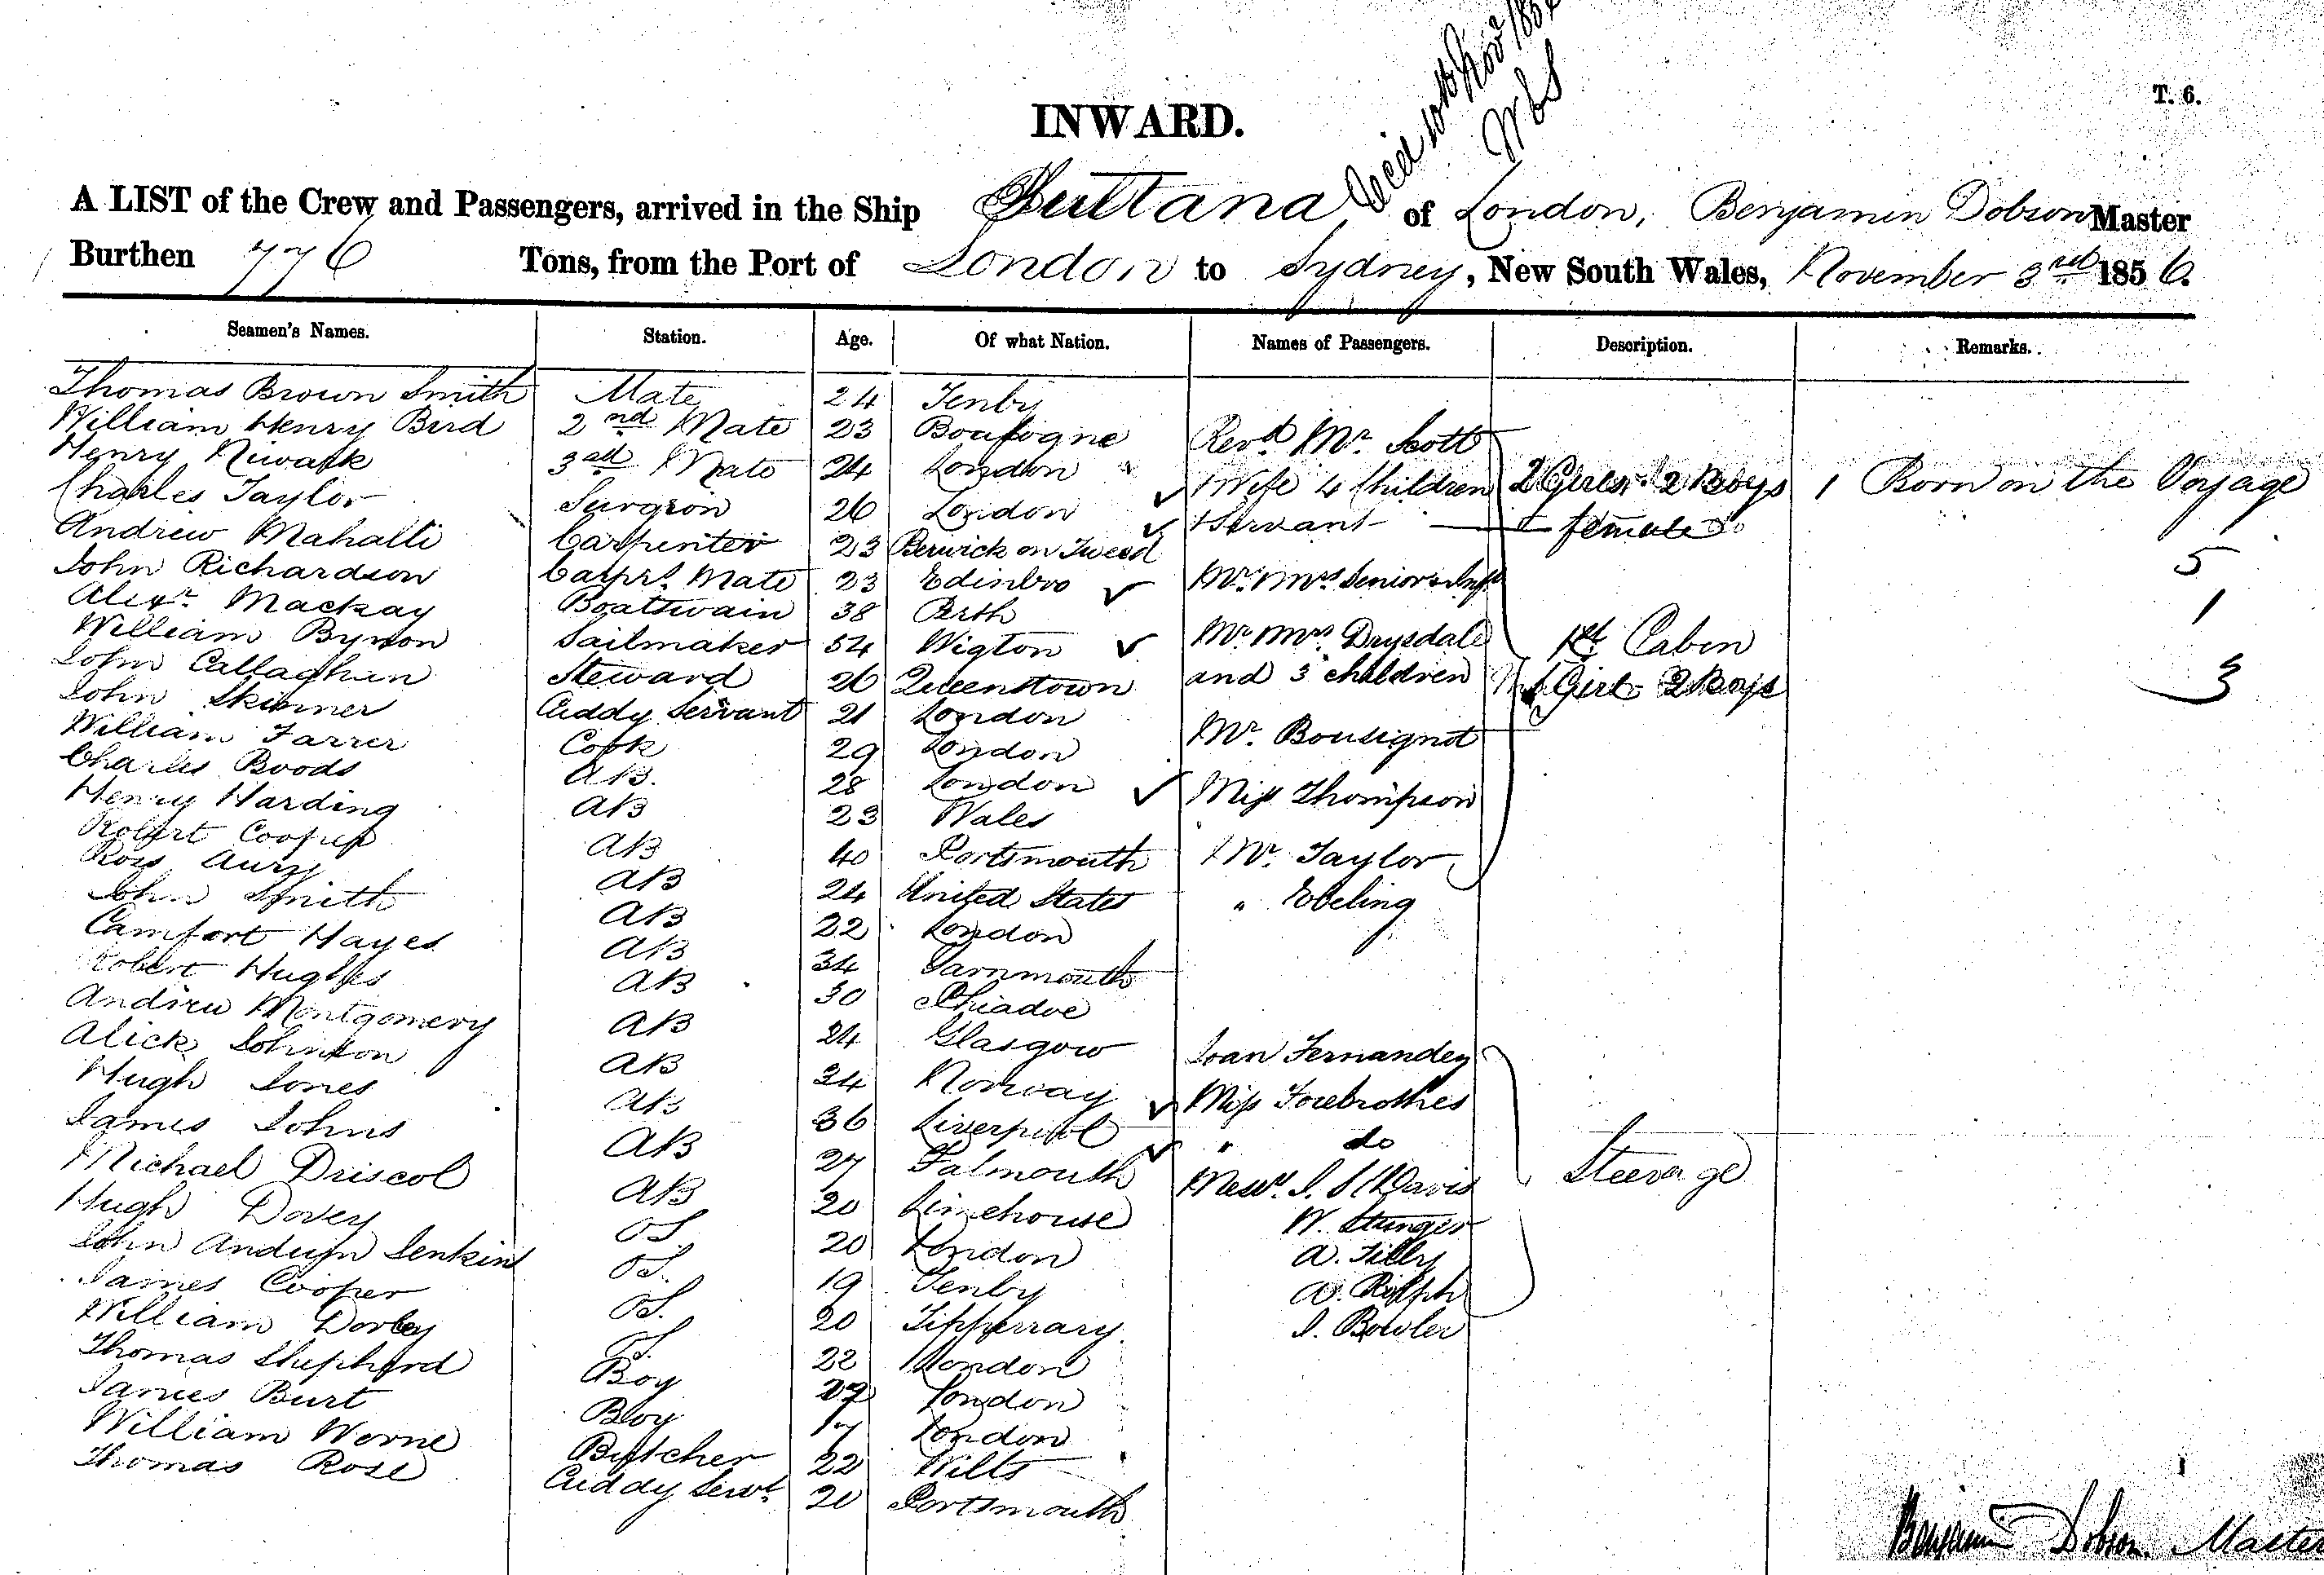 T. 6.
INWARD.
A LIST of the Crew and Passengers, arrived in the Ship Sultana of London, Benjamin Dobson Master
Burthen 776 Tons, from the Port of London to Sydney, New South Wales, November 3rd 1856.
Seamen's Names. Station. Age. Of what Nation. Names of Passengers. Description. Remarks.
Thomas Brown Smith Mate 24 Tenby
William Henry Bird 2nd Mate 23 Boulogne Revd. Mr. Scott
Henry Niwark 3rd Mate 24 London
Charles Taylor Surgeon 26 London 1 Wife 4 Children 2 Girls 2 Boys 1 Born on the Voyage
Andrew Mahalli Carpenter 23 Berwick on Tweed 1 Servant female
John Richardson Carprs. Mate 23 Edinbro Mr. Mrs. Senior 5
Alexr. Mackay Boatswain 38 Perth 1
William Bynon Sailmaker 54 Wigton Mr. Mrs. Drysdale 1st Cabin
John Callaghan Steward 26 Queenstown and 3 children 1 Girl 2 Boys 3
John Skinner Cuddy Servant 21 London
William Farrer Cook 29 London Mr. Bousignot
Charles Boods AB. 28 London Miss Thompson
Henry Harding AB 23 Wales
Robert Cooper AB 40 Portsmouth Mr. Taylor
Ross Aury AB 24 United States " Ebeling
John Smith AB 22 London
Camfort Hayes AB 34 Yarnmouth
Robert Hughes AB 30
Andrew Montgomery AB 24 Glasgow Joan Fernandez
Alick Johnson AB 34 Norway Miss Forebrothes
Hugh Jones AB 36 Liverpool " do
James Johns AB 27 Falmouth Messrs. J. Davis Steerage
Michael Driscol AB 20 Limehouse W. Sturges
Hugh Dovey OS 20 London A. Tilly
John Jenkins OS. 19 Tenby A. Ralph
James Cooper OS. 20 Tipperrary J. Bowler
William Dorley OS. 22 London
Thomas Shepherd Boy London
James Burt Boy 17 London
William Worne Butcher 22 Wilts
Thomas Rose Cuddy Servt. 20 Portsmouth
Benjamin Dobson. Master